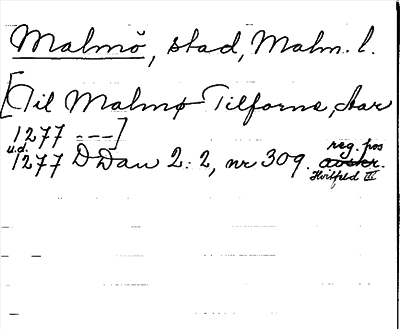 Malmö, stad, Malm. l.
[Til Malmø Tilforne, Aar
1277 ---]
u.d.
1277 DDan 2:2, nr 309. avskr. reg. pos
Hvitfeld III